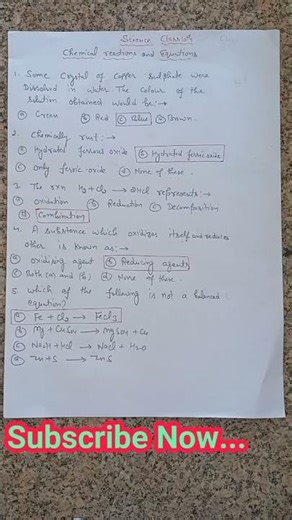 Science Class 10th
Chemical reactions and Equations
1. Some Crystal of copper sulphate were
dissolved in water. The colour of the
solution obtained would be:→
(a) Green (b) Red (c) Blue (d) Brown.
2. Chemically rust:→
(a) Hydrated ferrous oxide (b) Hydrated ferric oxide
(c) Only ferric oxide (d) None of these.
3. The rxn H2 + Cl2 → 2HCl represents:→
(a) oxidation (b) Reduction (c) Decomposition
(d) Combination
4. A substance which oxidizes itself and reduces
other is known as:→
(a) oxidising agent (b) Reducing agents
(c) Both (a) and (b) (d) None of these.
5. Which of the following is not a balanced
equation?
(a) Fe + Cl2 → FeCl3
(b) Mg + CuSO4 → MgSO4 + Cu
(c) NaOH + HCl → NaCl + H2O
(d) Zn + S → ZnS
Subscribe Now...